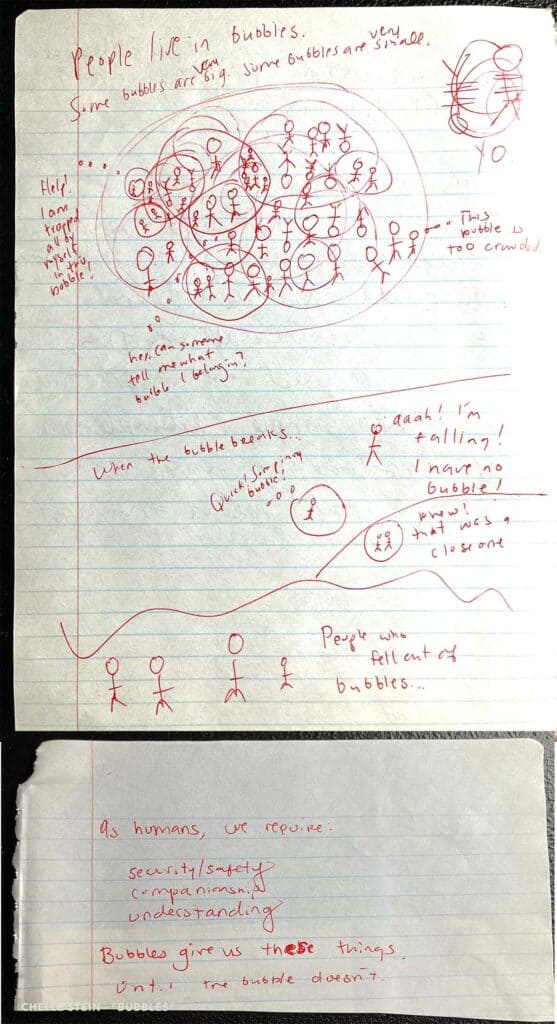 People live in bubbles.
Some bubbles are very big. Some bubbles are very small.
YO
Help!
I am
trapped
all by
myself
in this
bubble!
This
bubble is
too crowded
hey, can someone
tell me what
bubble I belong in?
When the bubble breaks...
aaah! I'm
falling!
I have no
bubble!
Quick! Jump in my
bubble!
phew!
that was a
close one
People who
fell out of
bubbles...
As humans, we require:
security/safety
companionship
understanding
Bubbles give us these things.
Until the bubble doesn't.
CHELLE STEIN "BUBBLES"